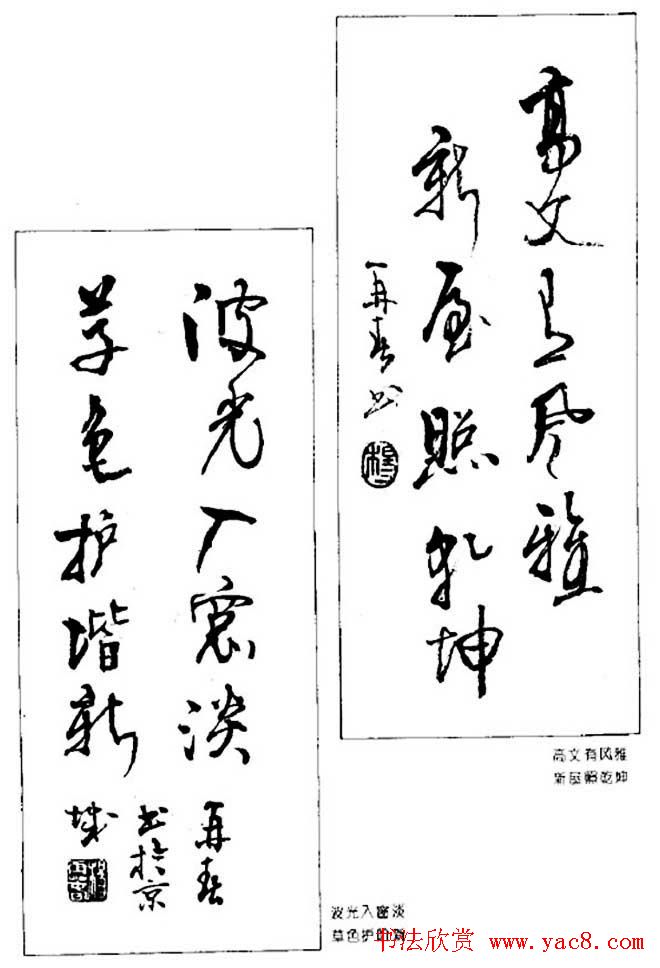 高文有风雅
新屋照乾坤
再春书
高文有风雅
新屋照乾坤
波光入窗淡
草色护堦新
再春
书於京
城
波光入窗淡
草色护
书法欣赏 www.yac8.com